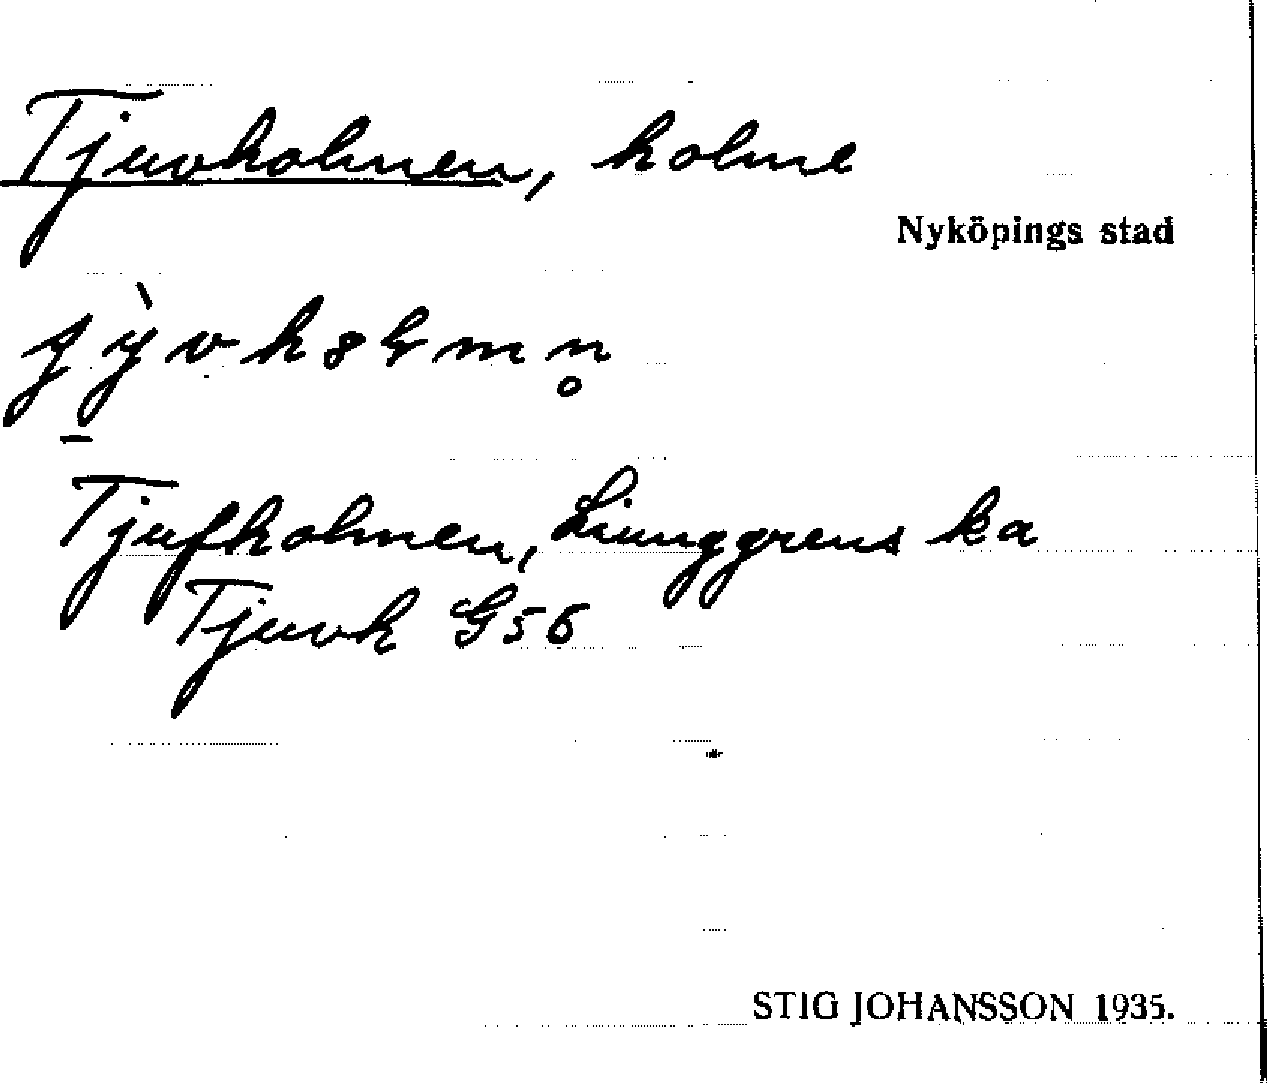 Tjuvholmen, holme
Nyköpings stad
Tjufholmen, Liunggrens ka
Tjuvh G56
STIG JOHANSSON 1935.